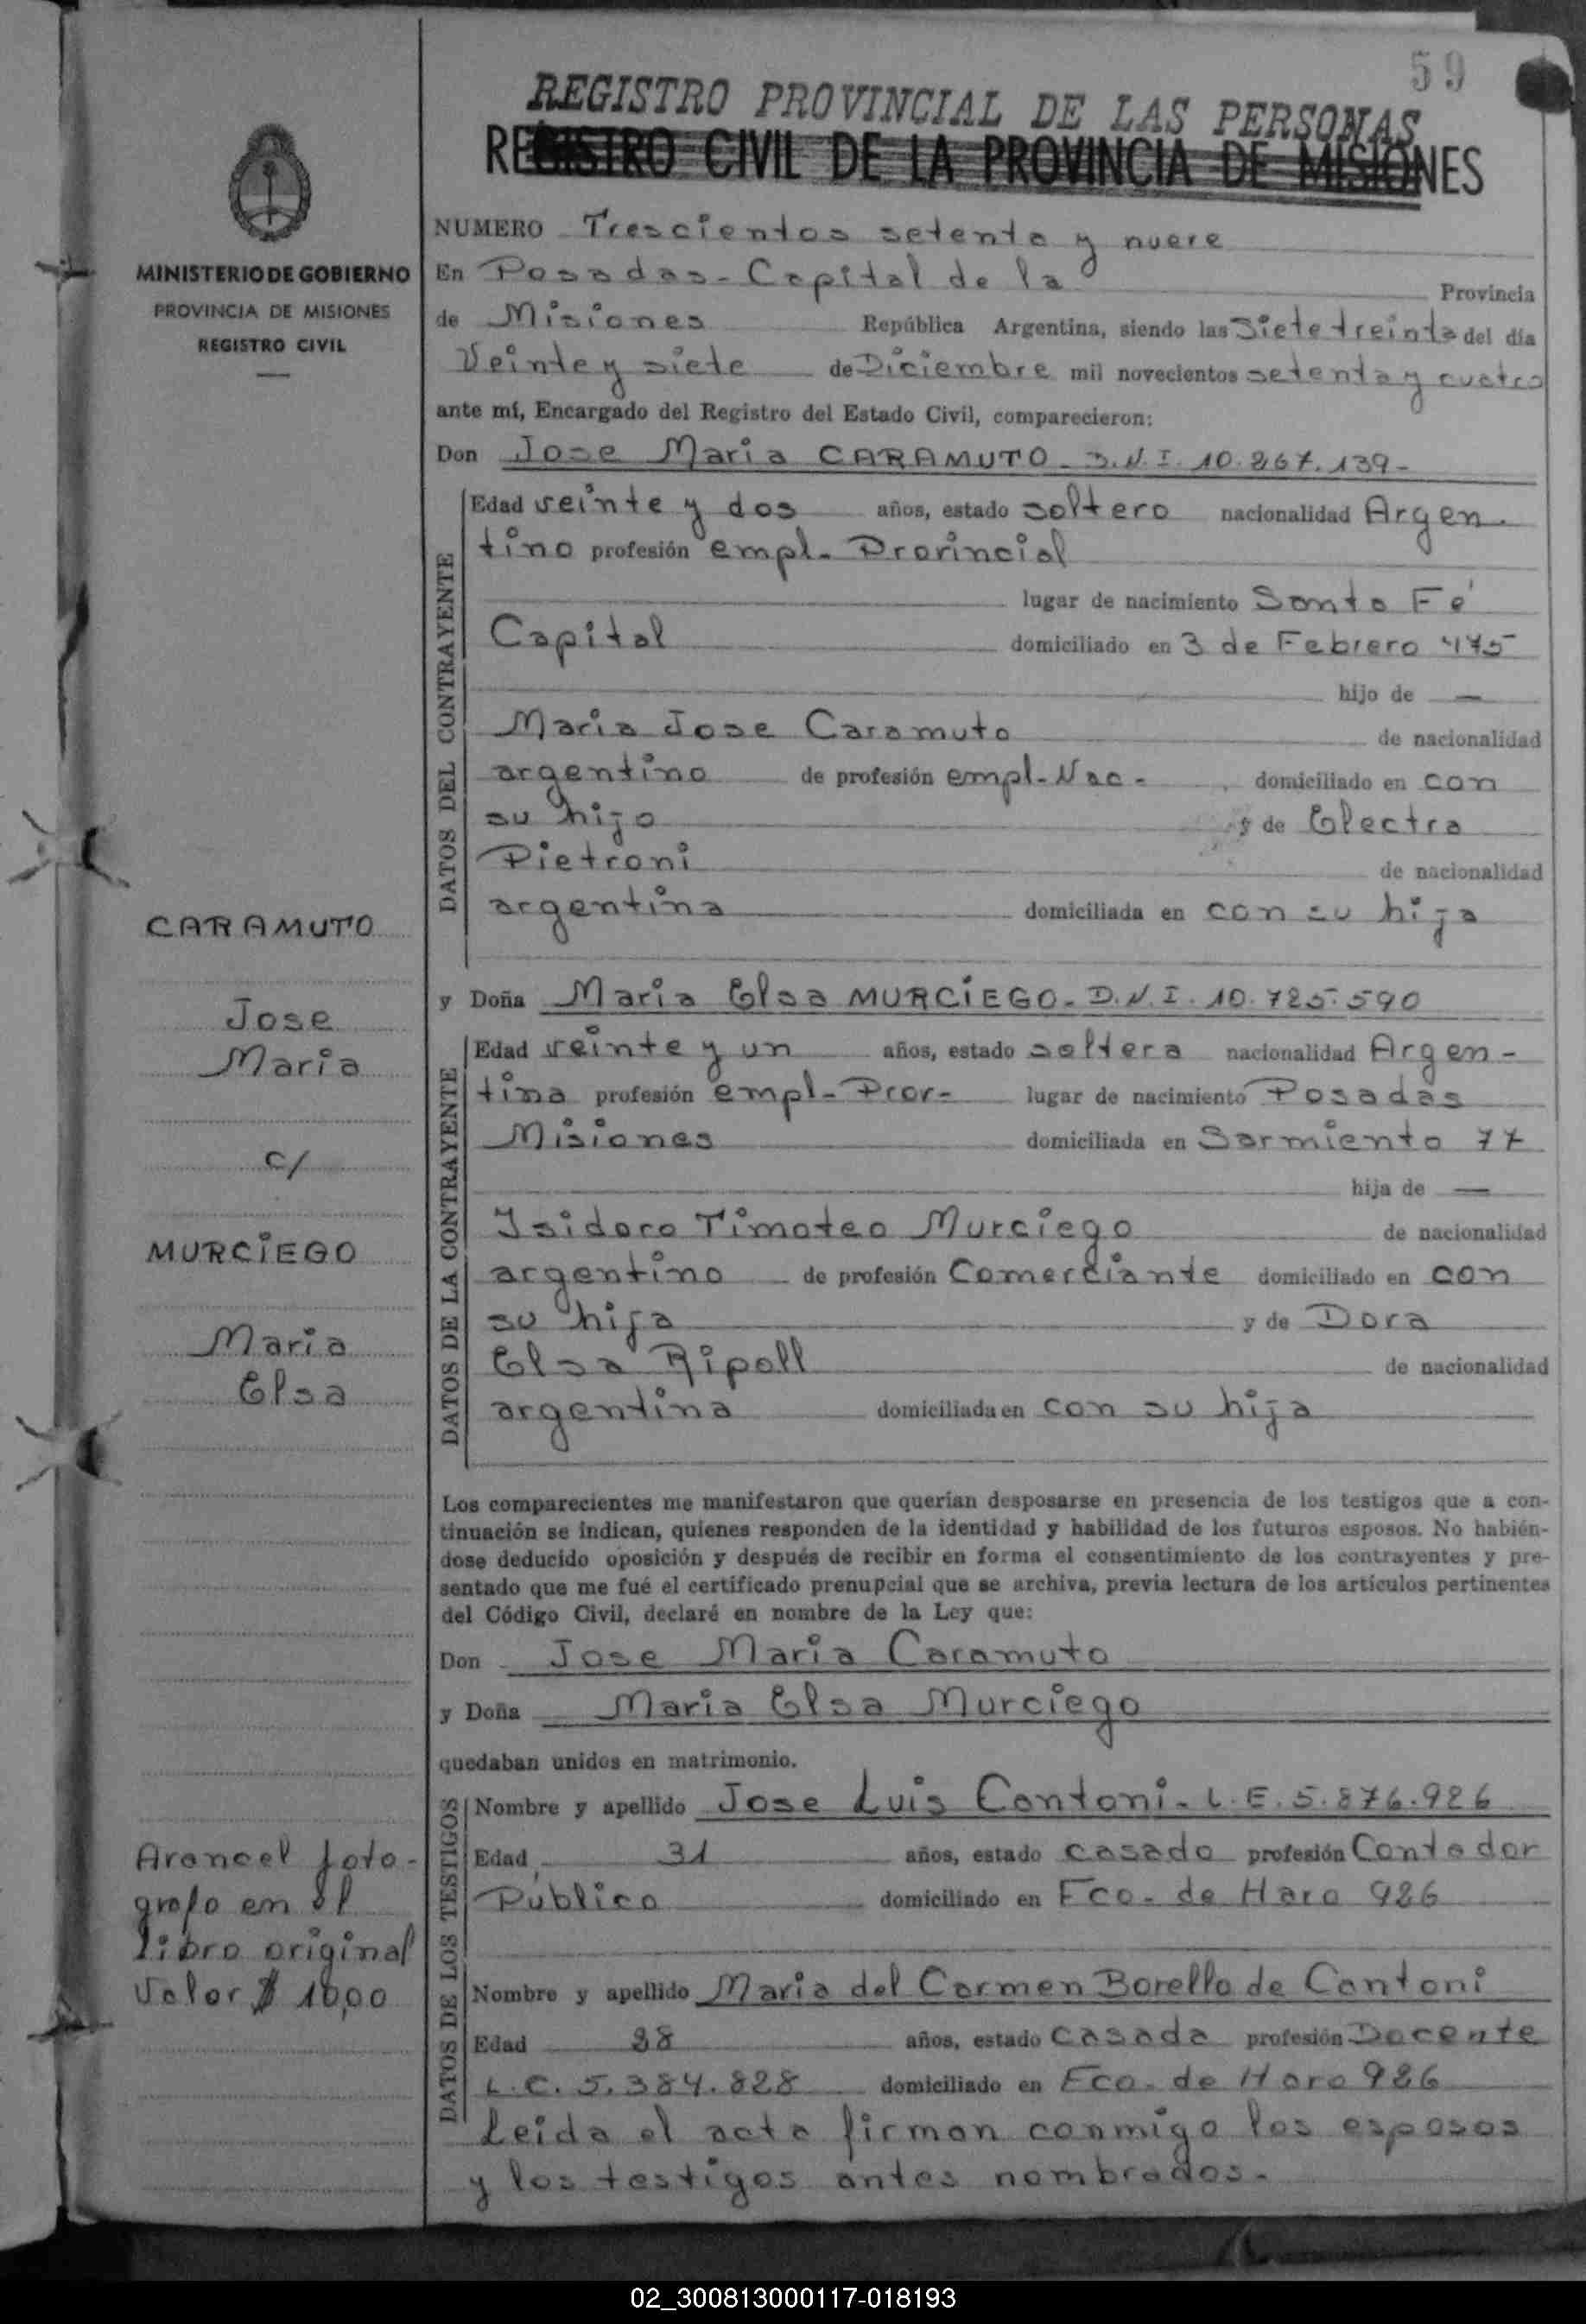 59
REGISTRO PROVINCIAL DE LAS PERSONAS
REGISTRO CIVIL DE LA PROVINCIA DE MISIONES
MINISTERIO DE GOBIERNO
PROVINCIA DE MISIONES
REGISTRO CIVIL
NUMERO Trescientos setenta y nueve
En Posadas - Capital de la Provincia
de Misiones República Argentina, siendo las Siete treinta del día
Veinte y siete de Diciembre mil novecientos setenta y cuatro
ante mí, Encargado del Registro del Estado Civil, comparecieron:
Don Jose Maria CARAMUTO - D.N.I. 10.867.139-
DATOS DEL CONTRAYENTE
Edad veinte y dos años, estado soltero nacionalidad Argen-
tino profesión empl- Provincial
lugar de nacimiento Santa Fé
Capital domiciliado en 3 de Febrero 475
hijo de —
Maria Jose Caramuto de nacionalidad
argentino de profesión empl- Nac- domiciliado en con
su hijo y de Electra
Pietroni de nacionalidad
argentina domiciliada en con su hija
y Doña Maria Elsa MURCIEGO - D.N.I. 10.725.590
DATOS DE LA CONTRAYENTE
Edad veinte y un años, estado soltera nacionalidad Argen-
tina profesión empl- Prov- lugar de nacimiento Posadas
Misiones domiciliada en Sarmiento 77
hija de —
Isidoro Timoteo Murciego de nacionalidad
argentino de profesión Comerciante domiciliado en con
su hija y de Dora
Elsa Ripoll de nacionalidad
argentina domiciliada en con su hija
Los comparecientes me manifestaron que querían desposarse en presencia de los testigos que a con-
tinuación se indican, quienes responden de la identidad y habilidad de los futuros esposos. No habién-
dose deducido oposición y después de recibir en forma el consentimiento de los contrayentes y pre-
sentado que me fué el certificado prenupcial que se archiva, previa lectura de los artículos pertinentes
del Código Civil, declaré en nombre de la Ley que:
Don Jose Maria Caramuto
y Doña Maria Elsa Murciego
quedaban unidos en matrimonio.
DATOS DE LOS TESTIGOS
Nombre y apellido Jose Luis Cantoni - L.E. 5.876.926
Edad 31 años, estado casado profesión Contador
Público domiciliado en Fco. de Haro 926
Nombre y apellido Maria del Carmen Borello de Cantoni
Edad 28 años, estado casada profesión Docente
L.C. 5.384.828 domiciliado en Fco. de Haro 926
Leida el acta firman conmigo los esposos
y los testigos antes nombrados.
CARAMUTO
Jose
Maria
c/
MURCIEGO
Maria
Elsa
Arancel foto-
grafo en el
libro original
Valor $ 10,00
02_300813000117-018193